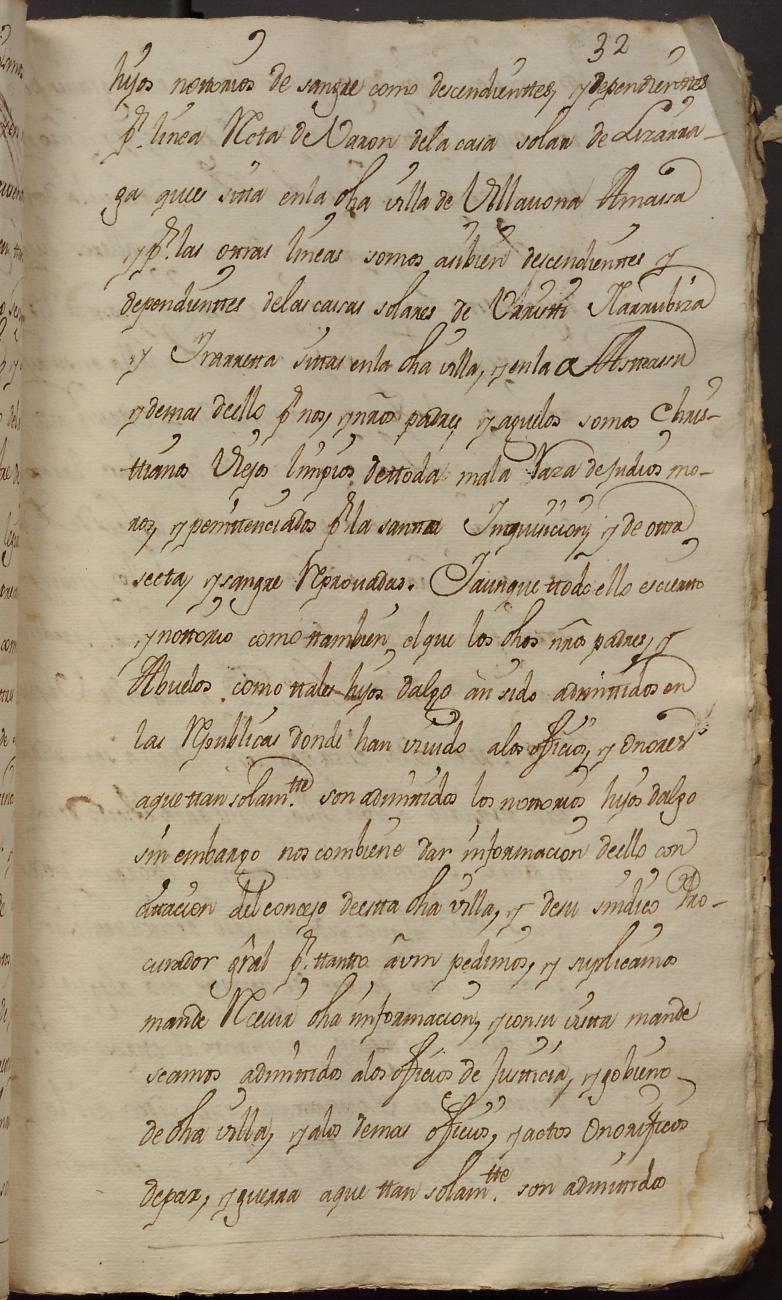 32
hijos nottorios de sangre como descendienttes, y dependienttes
pr. linea Recta de Varon dela casa solar de Lizarra-
ga que es sitta enla dha villa de Villavona Amassa
y pr. las ottras lineas somos asibien descendienttes y
dependienttes delas casas solares de Urrutti Narrubiza
y Yrarretta sittas enla dha villa, y enla de Asteasu
y demas dello pr. nos, y nros padres, y aguelos somos Chris-
ttianos Viejos limpios dettoda mala Raza de Judios mo-
ros, y penittenciados pr. la santta Inquisicion, y de ottra
secta, y sangre Reprovadas. Iaunque ttodo ello es cierto
y nottorio como ttambien el que los dhos nros padres, y
Abuelos como ttales hijos dalgo an sido admittidos en
las Republicas donde han vivido alos officios, y onores
aque ttan solamtte. son admittidos los nottorios hijos dalgo
sin embargo nos combiene dar informacion dello con
cittacion del concejo de estta dha villa, y desu sindico Pro-
curador gral pr. ttantto a vm pedimos, y suplicamos
mande Recivir dha informacion, y consu vistta mande
seamos admittidos alos officios de Justticia, y gobierno
de dha villa, y alos demas officios, y actos onorificos
depaz, y guerra aque ttan solamtte. son admittidos